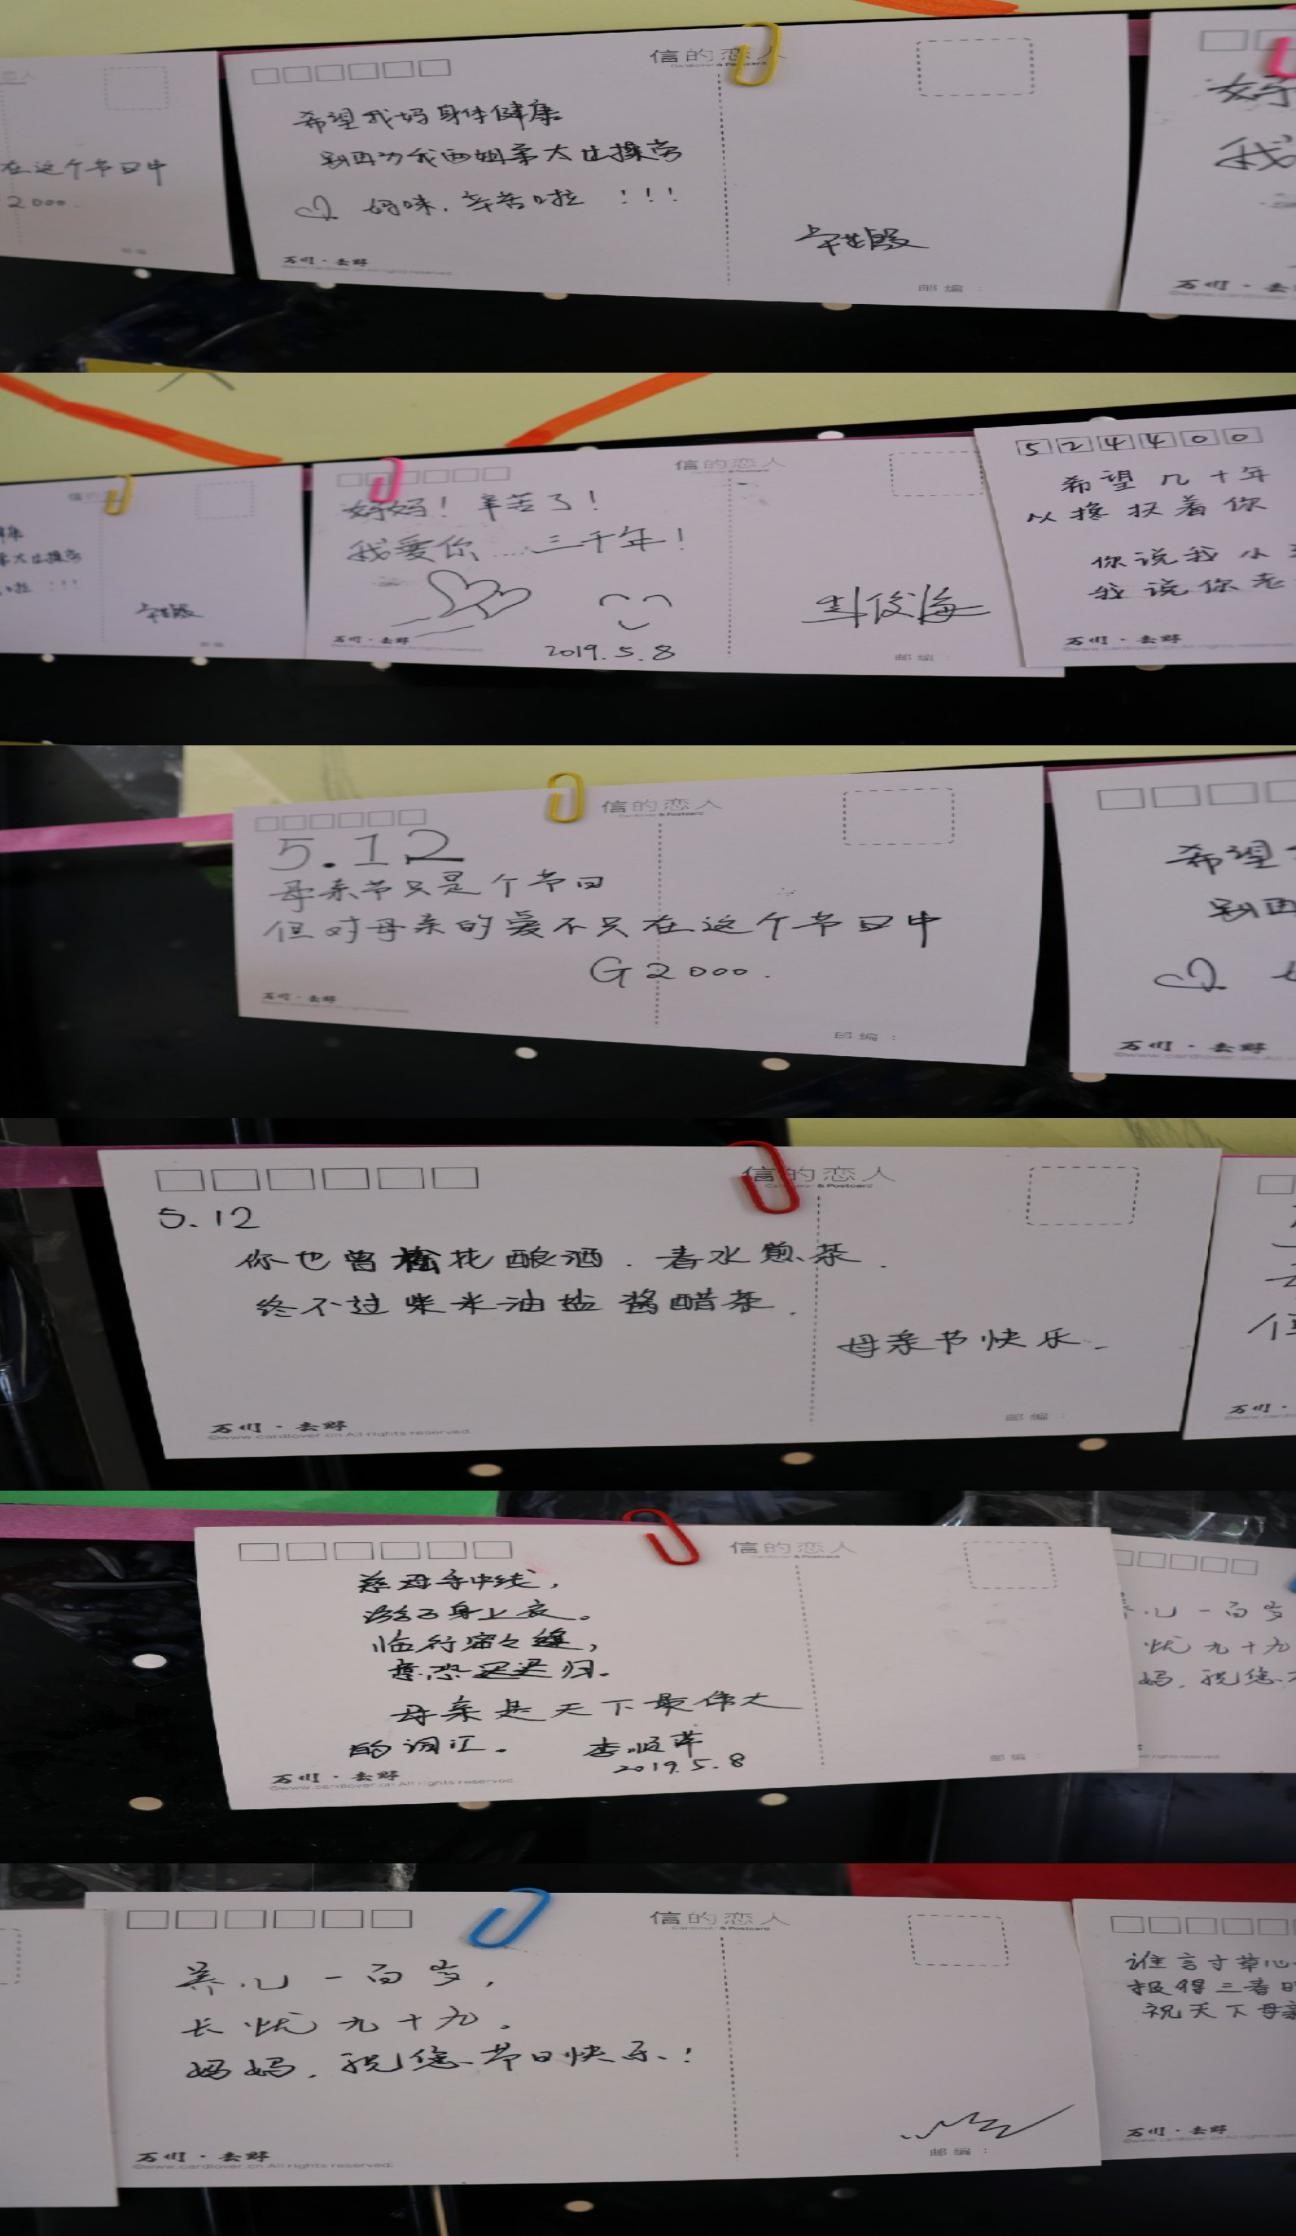 在这个节日中
2000.
信的恋人
希望我妈身体健康
别再为我两姐弟太过操劳
妈咪,辛苦啦 !!!
万州·去野
邮编:
好
我
万州·去野
信的恋人
妈妈!辛苦了!
我爱你……三千年!
2019.5.8
万州·去野
邮编:
524400
希望几十年
以搀扶着你
你说我小
我说你老
万州·去野
信的恋人
5.12
母亲节只是个节日
但对母亲的爱不只在这个节日中
G2000.
万州·去野
邮编:
希望
别再
万州·去野
信的恋人
5.12
你也曾松花酿酒.春水煎茶.
终不过柴米油盐酱醋茶.
母亲节快乐.
万州·去野
©www.cardlover.cn All rights reserved.
邮编:
万州·
信的恋人
慈母手中线,
游子身上衣。
临行密々缝,
意恐迟迟归。
母亲是天下最伟大
的词汇。 李顺萍
2019.5.8
万州·去野
©www.cardlover.cn All rights reserved.
邮编:
儿一百岁
忧九十九
妈,祝您
信的恋人
养儿一百岁,
长忧九十九.
妈妈,祝您节日快乐!
万州·去野
©www.cardlover.cn All rights reserved.
邮编:
谁言寸草心
报得三春
祝天下母亲
万州·去野